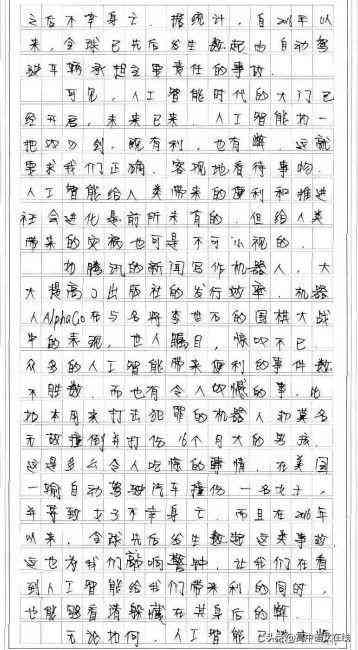 之后不幸身亡。据统计，自2016年以
来，全球已先后发生数起由自动驾
驶车辆承担主要责任的事故。
可见，人工智能时代的大门已
经开启，未来已来。人工智能如一
把双刃剑，既有利，也有弊。这就
要求我们正确、客观地看待事物。
人工智能给人类带来的便利和推进
社会进化是前所未有的，但给人类
带来的灾祸也可是不可小视的。
如腾讯的新闻写作机器人，大
大提高了出版社的发行效率，机器
人AlphaGo在与名将李世石的围棋大战
中的表现，世人瞩目，惊叹不已
众多的人工智能带来便利的事件数
不胜数，而也有令人惊憾的事，比
如本用来打击犯罪的机器人却莫名
无故撞倒并打伤16个月大的男孩，
这是多么令人吃惊的事情，在美国
一辆自动驾驶汽车撞伤一名女子，
并导致女子不幸身亡，而且在2016年
以来，全球先后发生数起这类事故，
这也为我们敲响警钟，让我们在看
到人工智能给我们带来利的同时，
也能够看清躲藏在其身后的弊。
无论如何，人工智能已
头条@高中语文在线